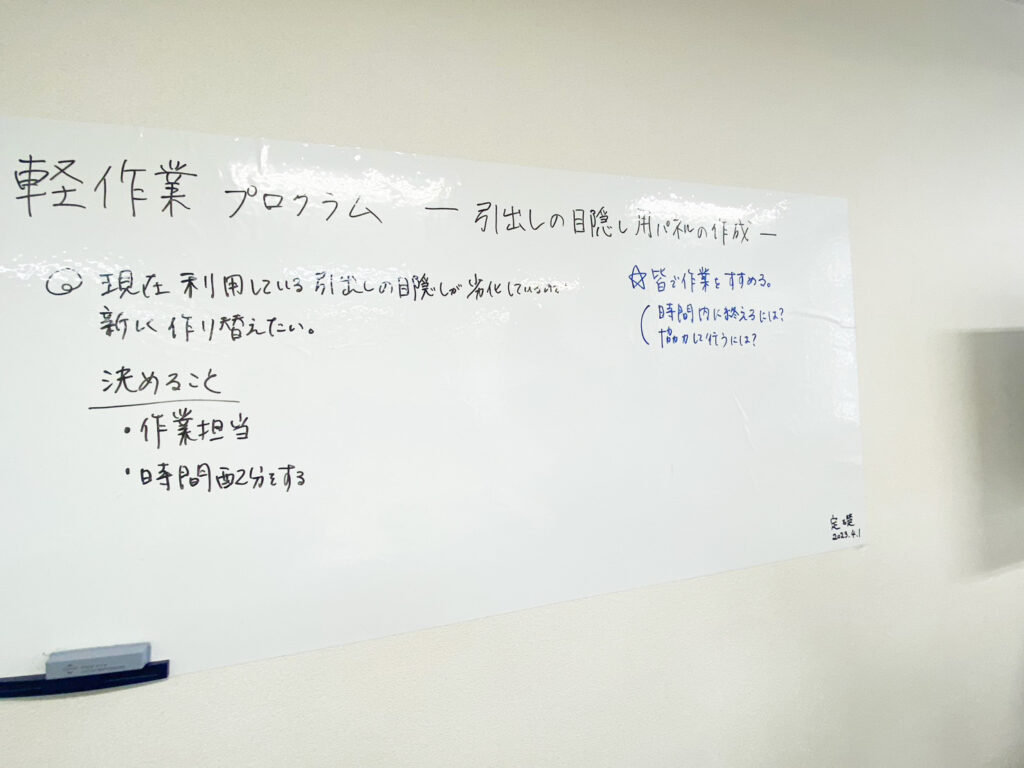 軽作業 プログラム ー 引出しの目隠し用パネルの作成 ー
◎ 現在利用している引出しの目隠しが劣化しているので
新しく作り替えたい。
決めること
・作業担当
・時間配分をする
☆皆で作業をすすめる。
(時間内に終えるには?
協力して行うには?
定礎
2023.4.1